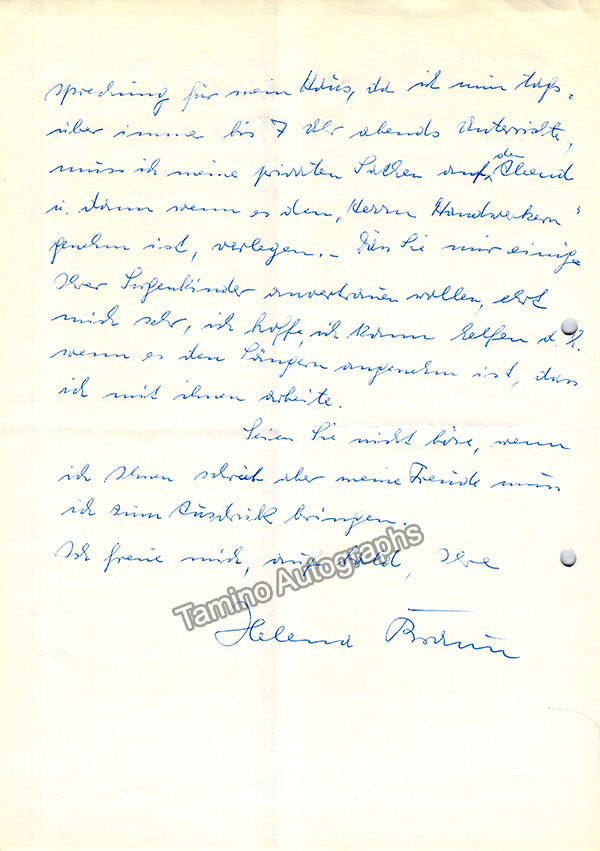 sprechung für mein Haus, da ich nun tags-
über immer bis 7 Uhr abends Unterrichte,
muss ich meine privaten Sachen auf den Abend
u. dann wenn es den „Herrn Handwerkern"
genehm ist, verlegen. – Dass Sie mir einige
Ihrer Sorgenkinder anvertrauen wollen, ehrt
mich sehr, ich hoffe, ich kann helfen d. h.
wenn es den Sängern angenehm ist, dass
ich mit ihnen arbeite.
Seien Sie nicht böse, wenn
ich Ihnen schrieb aber meine Freude muss
ich zum Ausdruck bringen.
Ich freue mich, auf bald, Ihre
Helena Braun
Tamino Autographs